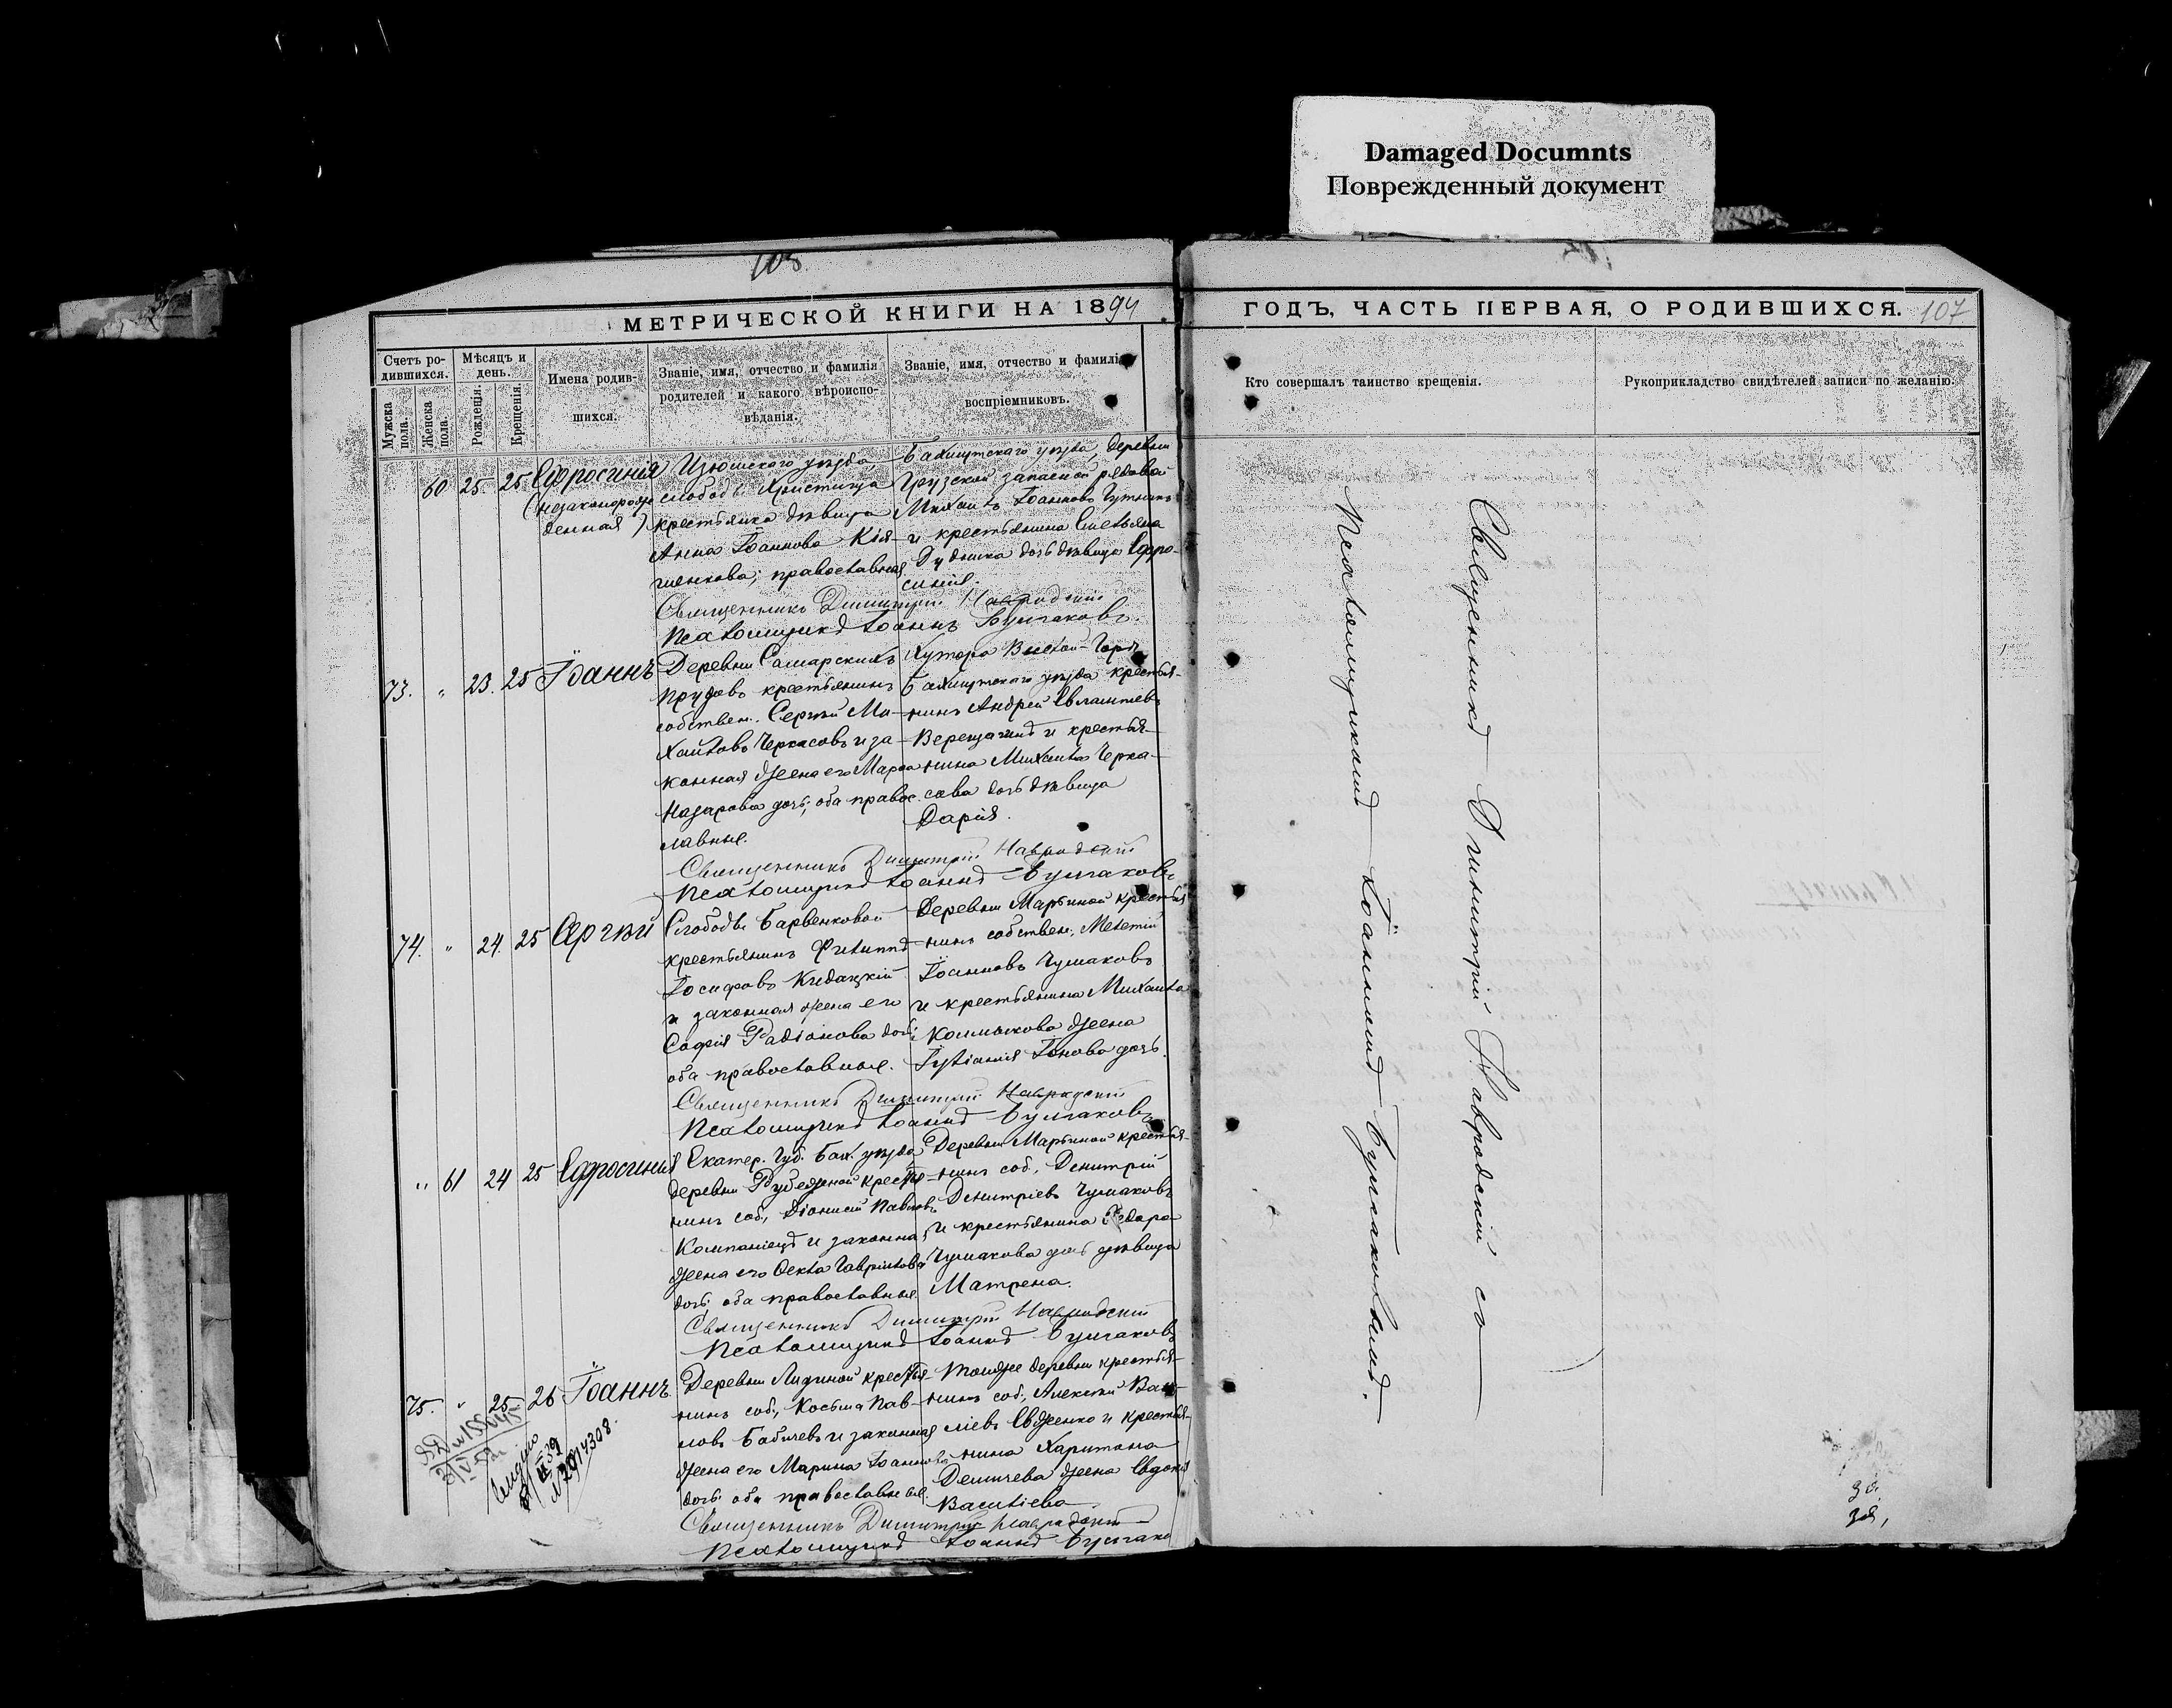 Damaged Documnts
Поврежденный документ
108
МЕТРИЧЕСКОЙ КНИГИ НА 1894
ГОДЪ, ЧАСТЬ ПЕРВАЯ, О РОДИВШИХСЯ.
107
Счетъ ро-
дившихся.
Мужска пола.
Женска пола.
Мѣсяцъ и
день.
Рожденія.
Крещенія.
Имена родив-
шихся.
Званіе, имя, отчество и фамилія
родителей и какого вѣроиспо-
вѣданія.
Званіе, имя, отчество и фамилія
воспріемниковъ.
Кто совершалъ таинство крещенія.
Рукоприкладство свидѣтелей записи по желанію.
60 25 25 Ефросинія
(незаконорож
денная)
Изюмскаго уѣзда,
слободы
крестьянка дѣвица
Анна Іоаннова
православная.
Бахмутскаго уѣзда, деревни
Грузской запасной рядовой
Михаилъ Іоанновъ
и крестьянина Емельяна
Дудника дочь дѣвица Ефро-
синія.
Священникъ Димитрій Навродскій
Псаломщикъ Іоаннъ Булгаковъ.
73. " 23. 25 Іоаннъ
Деревни Самарскихъ
Прудовъ крестьянинъ
собствен. Сергѣй Ми-
хайловъ Черкасовъ и за-
конная жена его Марѳа
Назарова дочь; оба правос-
лавные.
Хутора Высокой-Горы
Бахмутскаго уѣзда крестья-
нинъ Андрей Евлампіевъ
Верещагинъ и крестья-
нина Михаила Черка-
сова дочь дѣвица
Дарія.
Священникъ Димитрій Навродскій
Псаломщикъ Іоаннъ Булгаковъ
74. " 24. 25 Сергѣй
Слободы Барвенковой
крестьянинъ Филиппъ
Іосифовъ
и законная жена его
Софія Радіонова дочь;
оба православные.
Деревни Марьиной крестья
нинъ собствен. Мелетій
Іоанновъ Чумаковъ
и крестьянина Михаила
Колмыкова жена
Іуліанія Іонова дочь.
Священникъ Димитрій Навродскій
Псаломщикъ Іоаннъ Булгаковъ
" 61 24 25 Ефросинія
Екатер. Губ. Бах. уѣзда
деревни Рубежной крестья
нинъ соб. Діонисій Павловъ
Компаніецъ и законная
жена его Ѳекла Гавріилова
дочь; оба православные.
Деревни Марьиной крестья-
нинъ соб. Димитрій
Димитріевъ Чумаковъ
и крестьянина Ѳедора
Чумакова дочь дѣвица
Матрена.
Священникъ Димитрій Навродскій
Псаломщикъ Іоаннъ Булгаковъ
75. " 25 26 Іоаннъ
Деревни Лидиной крестья
нинъ соб. Косьма Пав-
ловъ Бабичевъ и законная
жена его Марина Іоаннова
дочь; оба православные.
Тойже деревни крестья-
нинъ соб. Алексѣй Васи-
ліевъ Евженко и крестья-
нина Харитона
Демичева жена Евдокія
Василіева
Священникъ Димитрій Навродскій
Псаломщикъ Іоаннъ Булгако
Священникъ Димитрій Навродскій съ
Псаломщикомъ Іоанномъ Булгаковымъ.